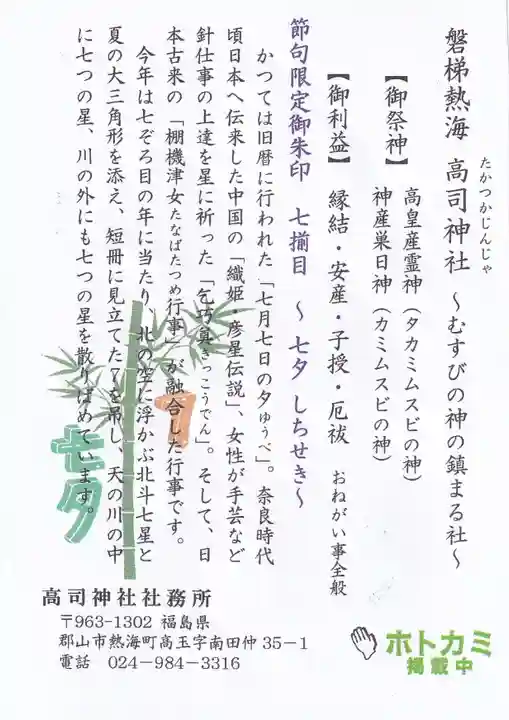 磐梯熱海 高司神社 ~むすびの神の鎮まる社~
たかつかじんじゃ
【御祭神】 高皇産霊神(タカミムスビの神)
神産巣日神(カミムスビの神)
【御利益】 縁結・安産・子授・厄祓 おねがい事全般
節句限定御朱印 七揃目 ~ 七夕 しちせき~
かつては旧暦に行われた「七月七日の夕ゅうべ」。奈良時代
頃日本へ伝来した中国の「織姫・彦星伝説」、女性が手芸など
針仕事の上達を星に祈った「乞巧奠きっこうでん」。そして、日
本古来の「棚機津女たなばたつめ行事」が融合した行事です。
今年は七ぞろ目の年に当たり、北の空に浮かぶ北斗七星と
夏の大三角形を添え、短冊に見立てた7を吊し、天の川の中
に七つの星、川の外にも七つの星を散りばめています。
7
七夕
高司神社社務所
〒963-1302 福島県
郡山市熱海町高玉字南田仲35-1
電話 024-984-3316
ホトカミ
掲載中